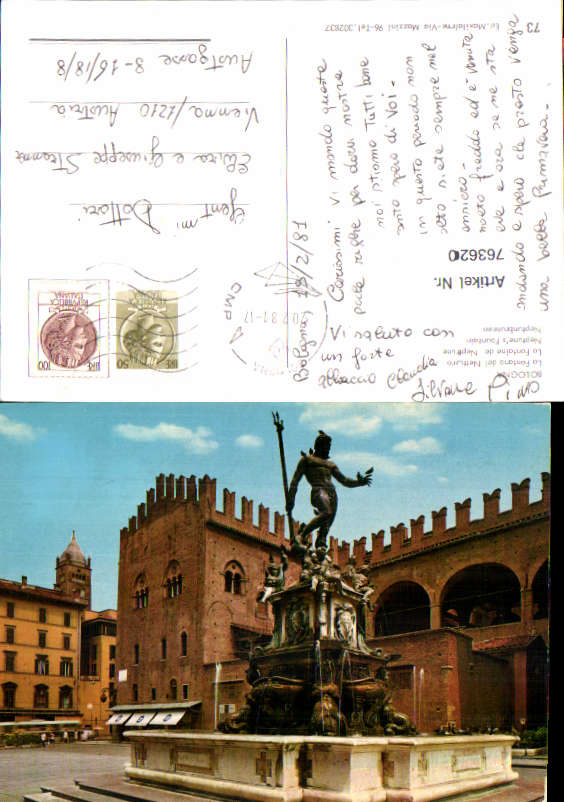 73
Ed. Maxilalena-Via Mazzini 96-Tel. 302837
BOLOGNA
La Fontana del Nettuno
La Fontaine de Neptune
Neptune Fountain
Neptunbrunnen
Artikel Nr. 763620
Bologna 18/2/81
Carissimi Vi mando queste
poche righe per darvi nostre
noi stiamo tutti bene
tanto spero di Voi-
in questo periodo non
siete sempre nel
è venuta
freddo ed
neve e ora se ne sta
andando e spero che presto venga
una bella Primavera-
Vi saluto con
un forte
abbraccio Claudia
Silvana Pino
Gent mi
Dottori
Elvira e Giuseppe
Vienna/1210 Austria
8-16/18/8
LIRE 100
LIRE 50
REPUBBLICA ITALIANA
20.2.81-17
CMP